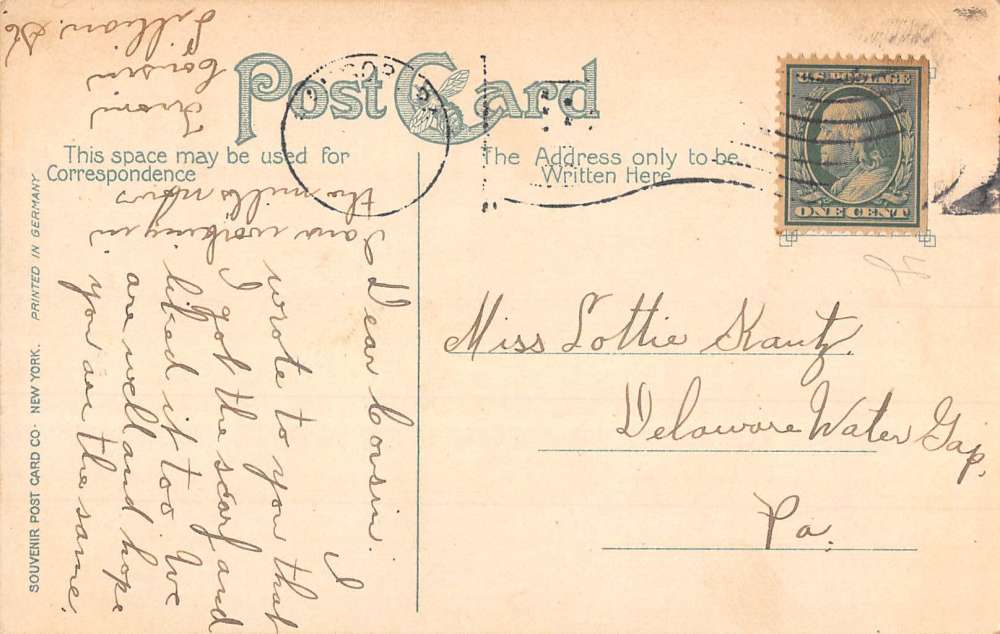 Post Card
This space may be used for
Correspondence
The Address only to be
Written Here
U.S. POSTAGE
ONE CENT
SOUVENIR POST CARD CO· NEW YORK. PRINTED IN GERMANY
Miss Lottie Kautz.
Delaware Water Gap,
Pa.
Dear Cousin. I
wrote to you that
I got the scarf and
liked it too. We
are well and hope
you are the same.
I am working in
the mills now
From
Cousin
Lillian